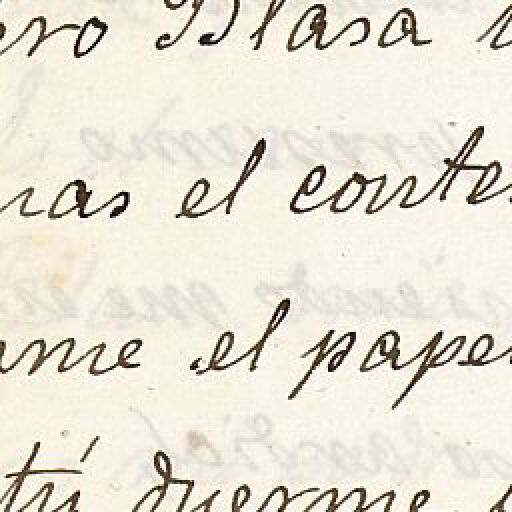 ero Blasa
nas el conte
ame el pape
tú duerme